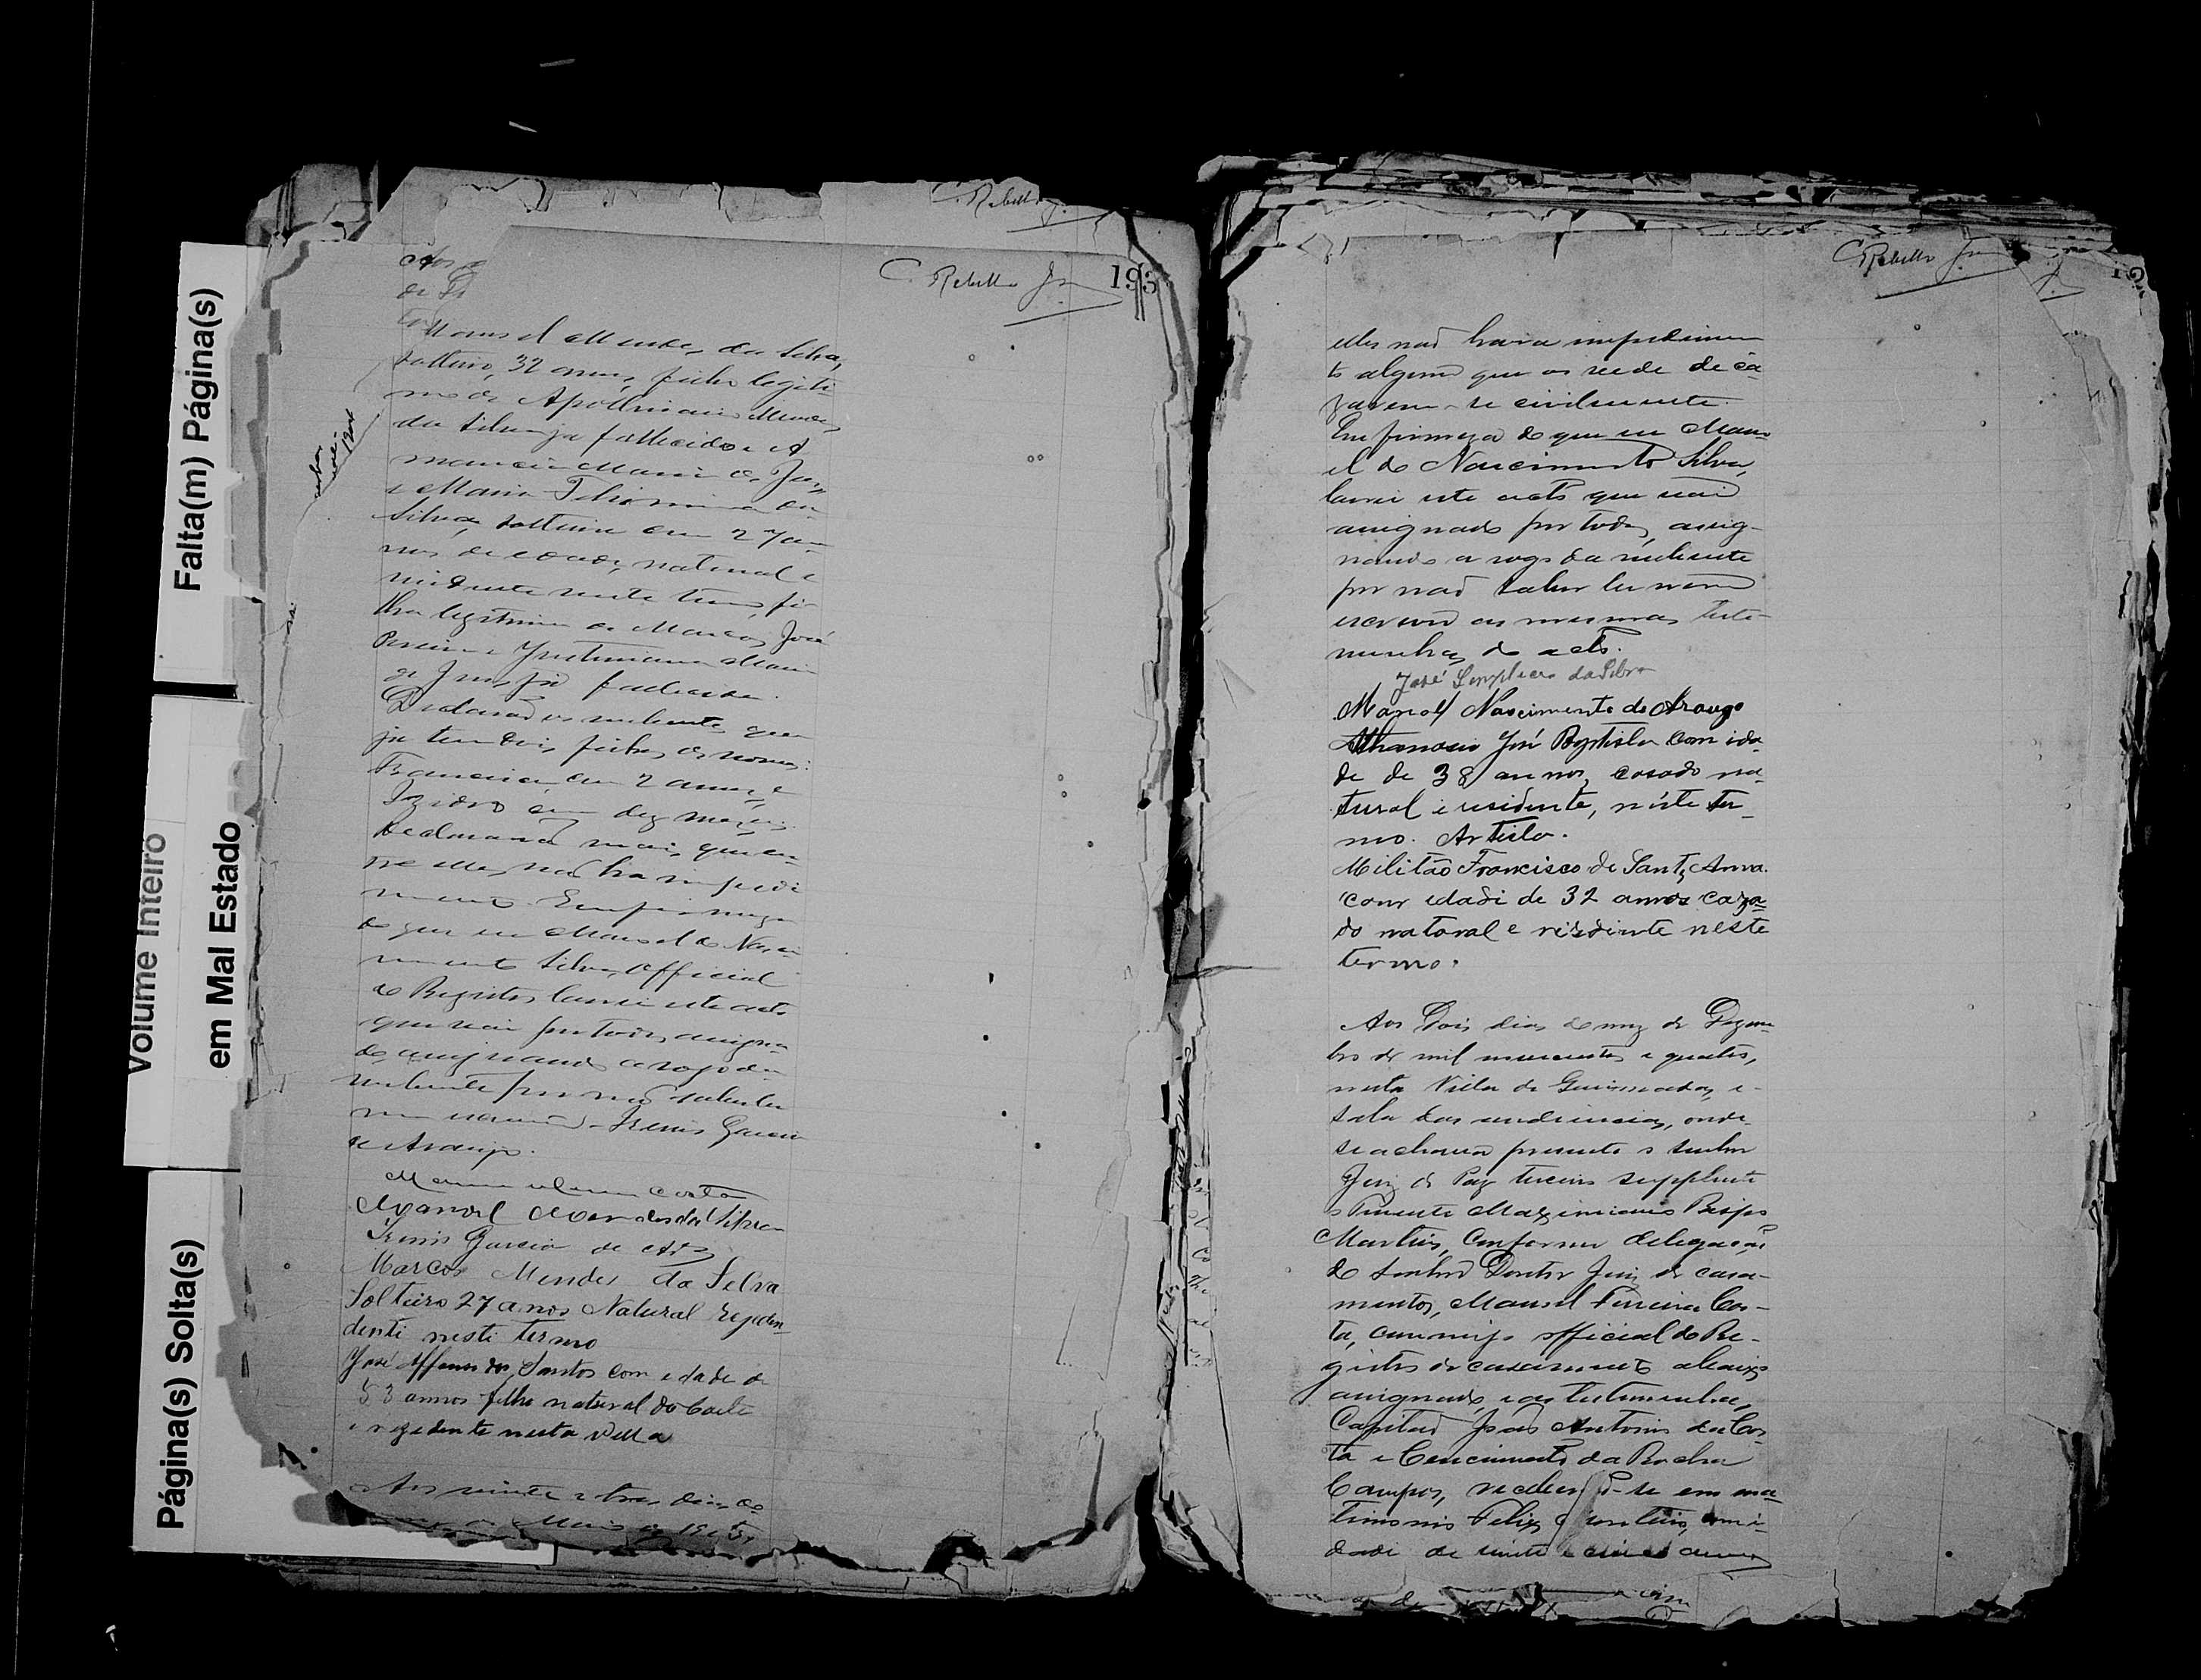 Falta(m) Página(s)
Volume Inteiro
em Mal Estado
Página(s) Solta(s)
C. Rebello Jr.
C. Rebello Jr 193
Aos
de
Manoel Mendes da Silva,
solteiro, 32 annos, filho legiti-
mo de Apollinario Mendes
da Silva ja fallecido e A
mancia Maria de Jesus
e Maria Felismina da
Silva, solteira com 27 an-
nos de edade, natural e
residente neste termo, fi-
lha legitima de Marcos José
Pereira e Justiniana Maria
de Jesus já fallecida.
Declararão os nubentes que
ja tem dois filhos de nomes:
Francisca com 2 annos e
Izidro com dez mezes.
Declararão mais, que en-
tre elles não ha impedi
mento. Em firmeza
do que eu Manoel do Nasci
mento Silva, Official
do Registro lavrei este acto
que vai por todos assigna
do, assignando a rogo da
nubente por não saber ler
nem escrever - Irenis Garcia
de Araujo.
Costa
Manoel Mendes da Silva
Irenis Garcia de Arº
Marcos Mendes da Selva
Solteiro 27 anos Natural rezeden-
denti nesti termo
José Affonso dos Santos com edade de
53 annos filho natural do
e rezedente nesta Villa
Aos vinte e tres dias do
de Maio de
C Rebello Jr
elles não havia impedimen
to algum que os vede de ca-
zarem-se civilmente.
Em firmeza do que eu Mano-
el do Nascimento Silva,
lavrei este acto que vai
assignado por todos, assig-
nando a rogo da nubente
por não saber ler nem
escrever as mesmas teste-
munhas do acto.
José Simpliceo da Silva
Manoel Nascimento de Araujo
Athanasio José Baptista com ida-
de de 38 annos, casado na-
tural e residente, néste ter-
mo. Artista.
Militão Francisco de Sant'Anna.
com idadi de 32 annos caza-
do natoral e rizidinte neste
termo.
Aos Dois dias do mez de Dezem-
bro de mil novecentos e quatro,
nesta Villa de Queimadas, e
sala das audiencias, onde
se achava presente o senhor
Juiz de Paz terceiro supplente
o Tenente Maximiano Bispo
Martins, Conforme delegação
do senhor Doutor Juiz de casa-
mentos, Manoel Ferreira Cos-
ta, commigo official do Re-
gistro de casamento abaixo
assignado, e as testemunhas,
Capitão João Antonio da Cos-
ta e Cencimento da Rocha
Campos, receberão-se em ma-
timonio Felix com i-
dade de vinte e cinco annos